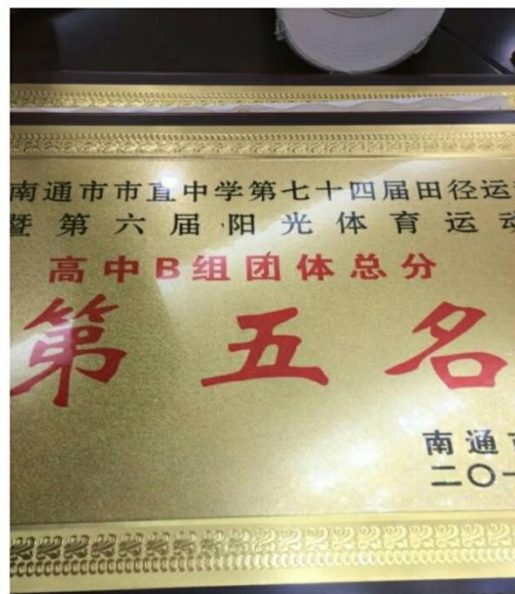 南通市市直中学第七十四届田径运
暨第六届阳光体育运动
高中B组团体总分
第五名
南通市
二〇一